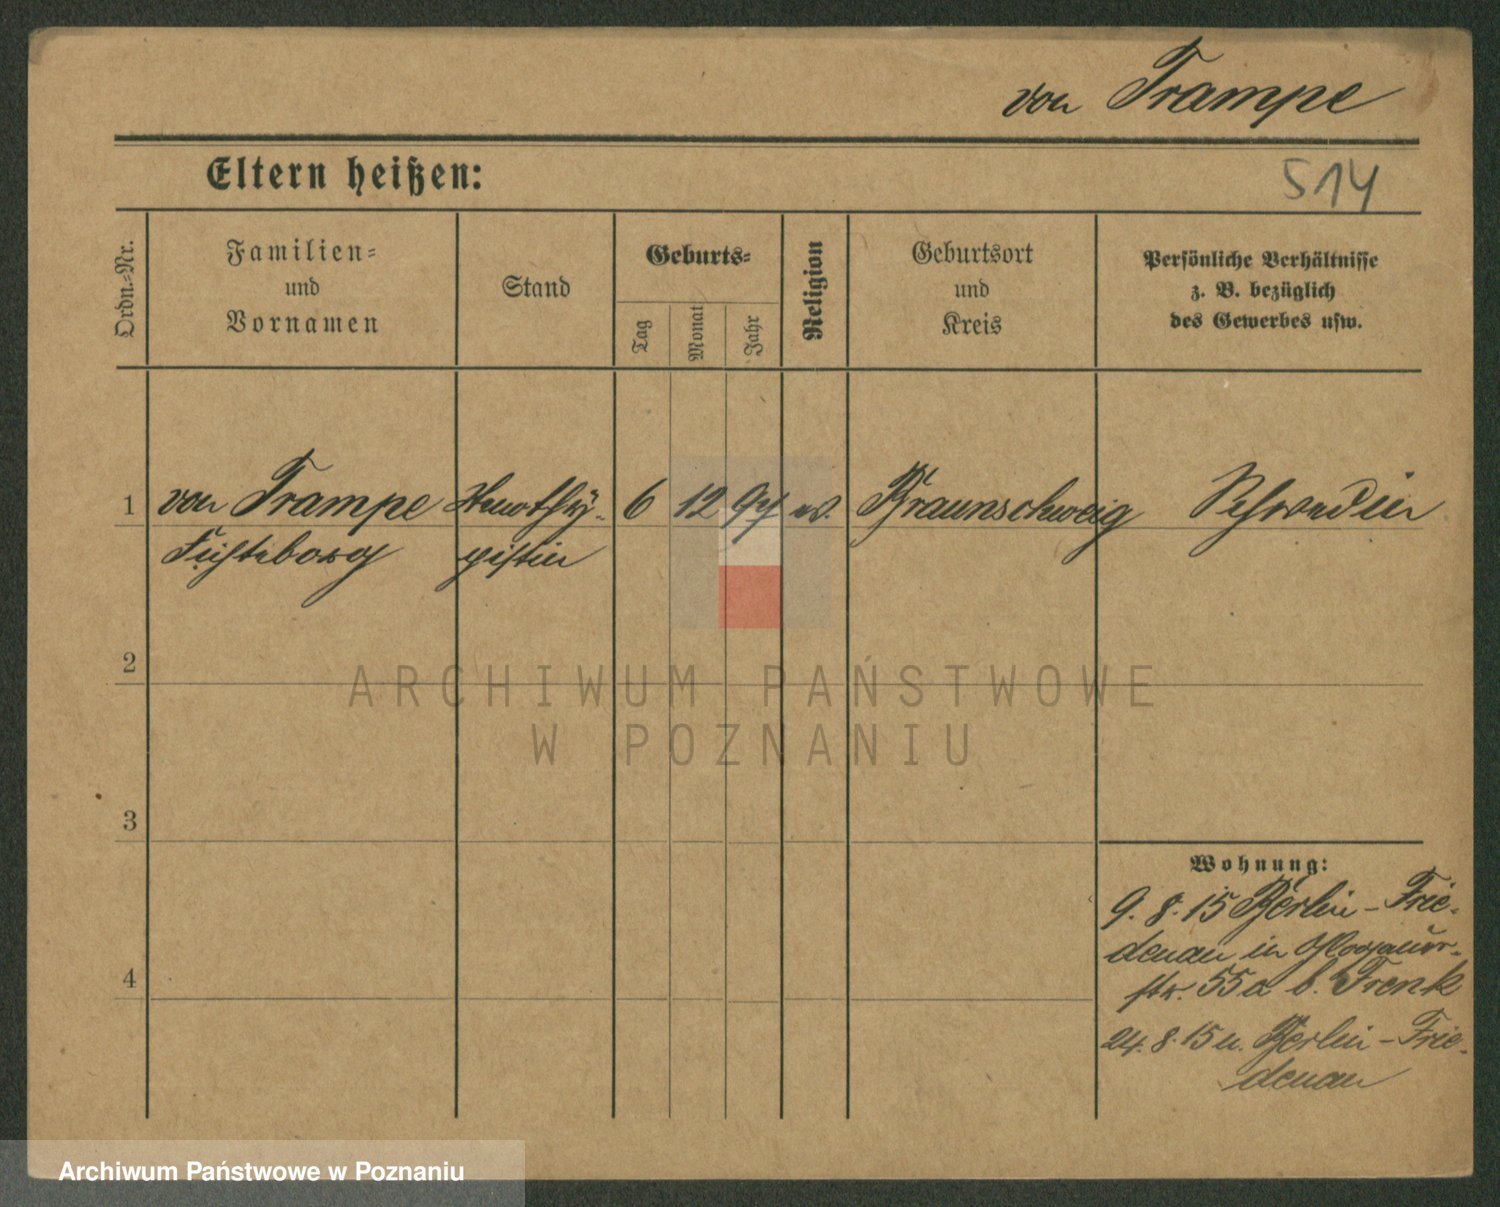 von Trampe
Eltern heißen:
514
Ordn.-Nr.
Familien-
und
Vornamen
Stand
Geburts-
Tag
Monat
Jahr
Religion
Geburtsort
und
Kreis
Persönliche Verhältnisse
z. B. bezüglich
des Gewerbes usw.
1
von Trampe
Stenothy-
6
12
94
ev.
Braunschweig
Schwedin
pistin
2
3
4
Wohnung:
9. 8. 15 Berlin-Frie-
denau in
str. 55a b. Frenk
24. 8. 15 n. Berlin-Frie-
denau
ARCHIWUM PAŃSTWOWE
W POZNANIU
Archiwum Państwowe w Poznaniu